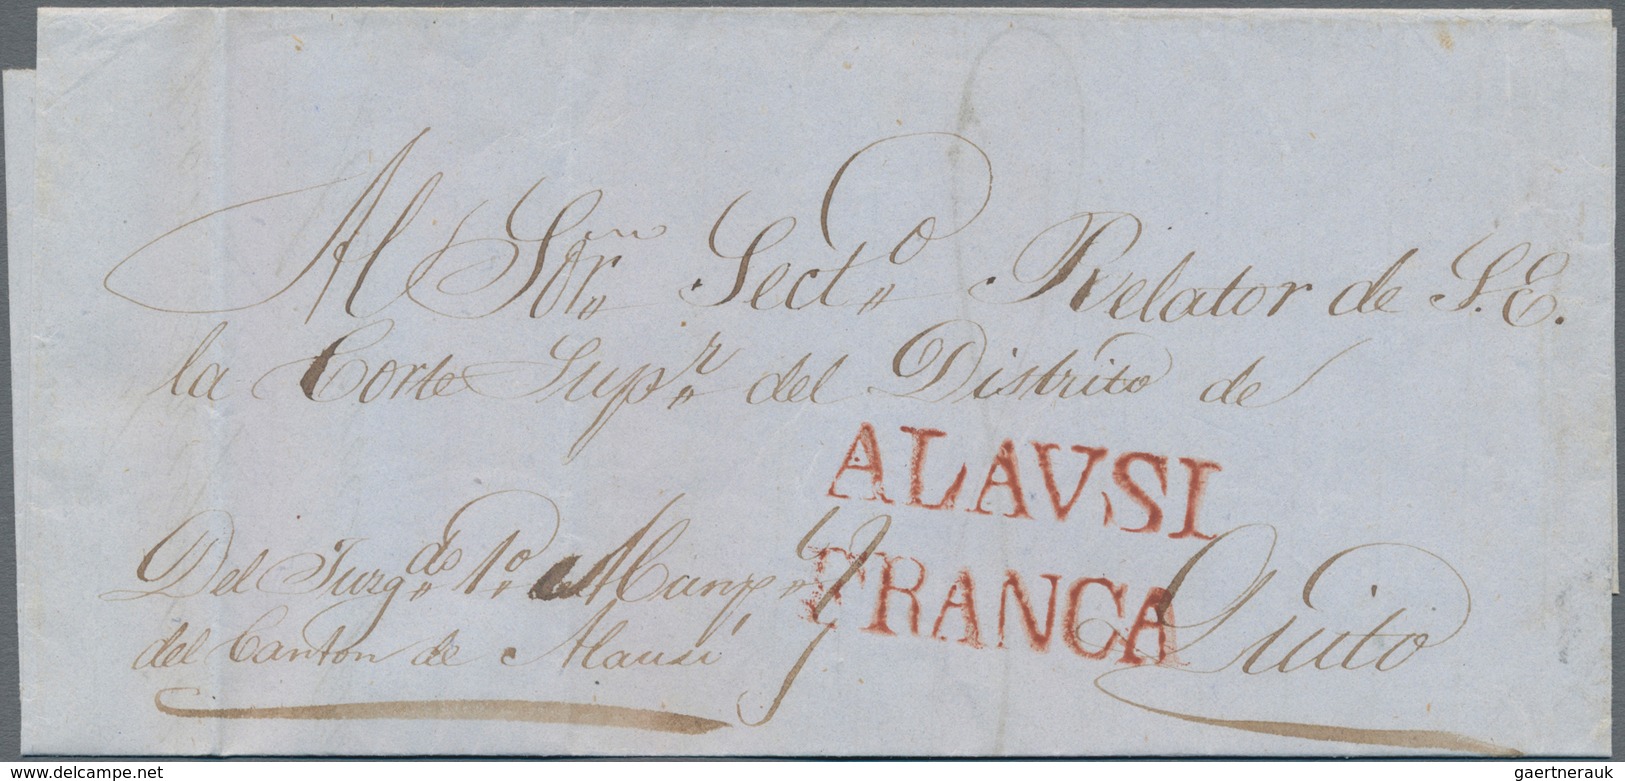 Al Sor. Sect.o Relator de S.E.
la Corte Supr. del Distrito de
ALAVSI
FRANCA
Quito
Del Juzg.do 1.o Munp.l
del Canton de Alausi
delcampe.net
gaertnerauk